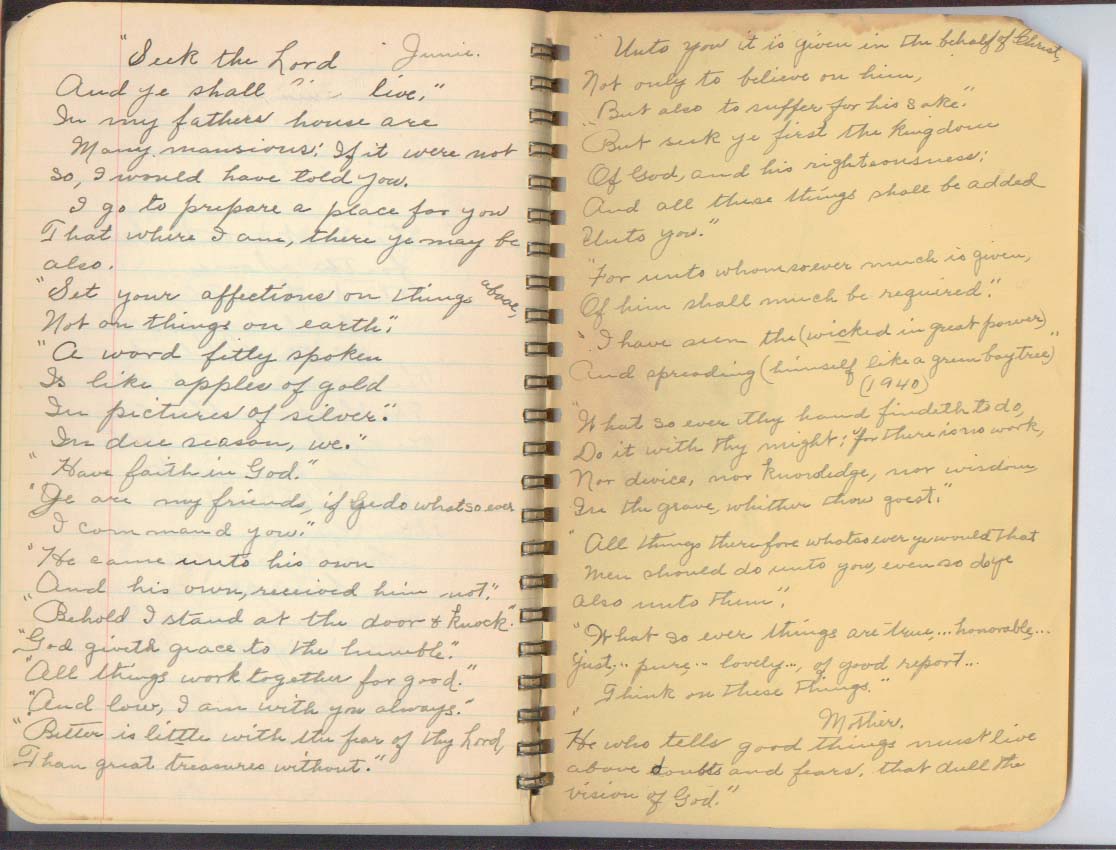 "Seek the Lord Junie.
And ye shall " " live."
In my fathers house are
Many mansions: If it were not
so, I would have told you.
I go to prepare a place for you
That where I am, there ye may be
also.
"Set your affections on things above,
Not on things on earth."
"A word fitly spoken
Is like apples of gold
In pictures of silver."
In due season, we."
"Have faith in God."
"Ye are my friends, if ye do whatsoever
I command you."
"He came unto his own
And his own, received him not."
"Behold I stand at the door & knock."
"God giveth grace to the humble."
"All things work together for good."
"And low, I am with you always."
"Better is little with the fear of thy Lord,
Than great treasures without."
"Unto you it is given in the behalf of Christ,
Not only to believe on him,
But also to suffer for his sake."
"But seek ye first the kingdom
Of God, and his righteousness;
And all these things shall be added
Unto you."
"For unto whomsoever much is given,
Of him shall much be required."
"I have seen the (wicked in great power)
And spreading (himself like a green bay tree)"
(1940)
"What so ever thy hand findeth to do,
Do it with thy might; for there is no work,
Nor divice, nor knowledge, nor wisdom
In the grave, whither thou goest."
"All things therefore whatsoever ye would that
Men should do unto you, even so do ye
also unto them".
"What so ever things are true,... honorable...
Just,.. pure,.. lovely..., of good report...
Think on these things."
Mother.
"He who tells good things must live
above doubts and fears, that dull the
vision of God."